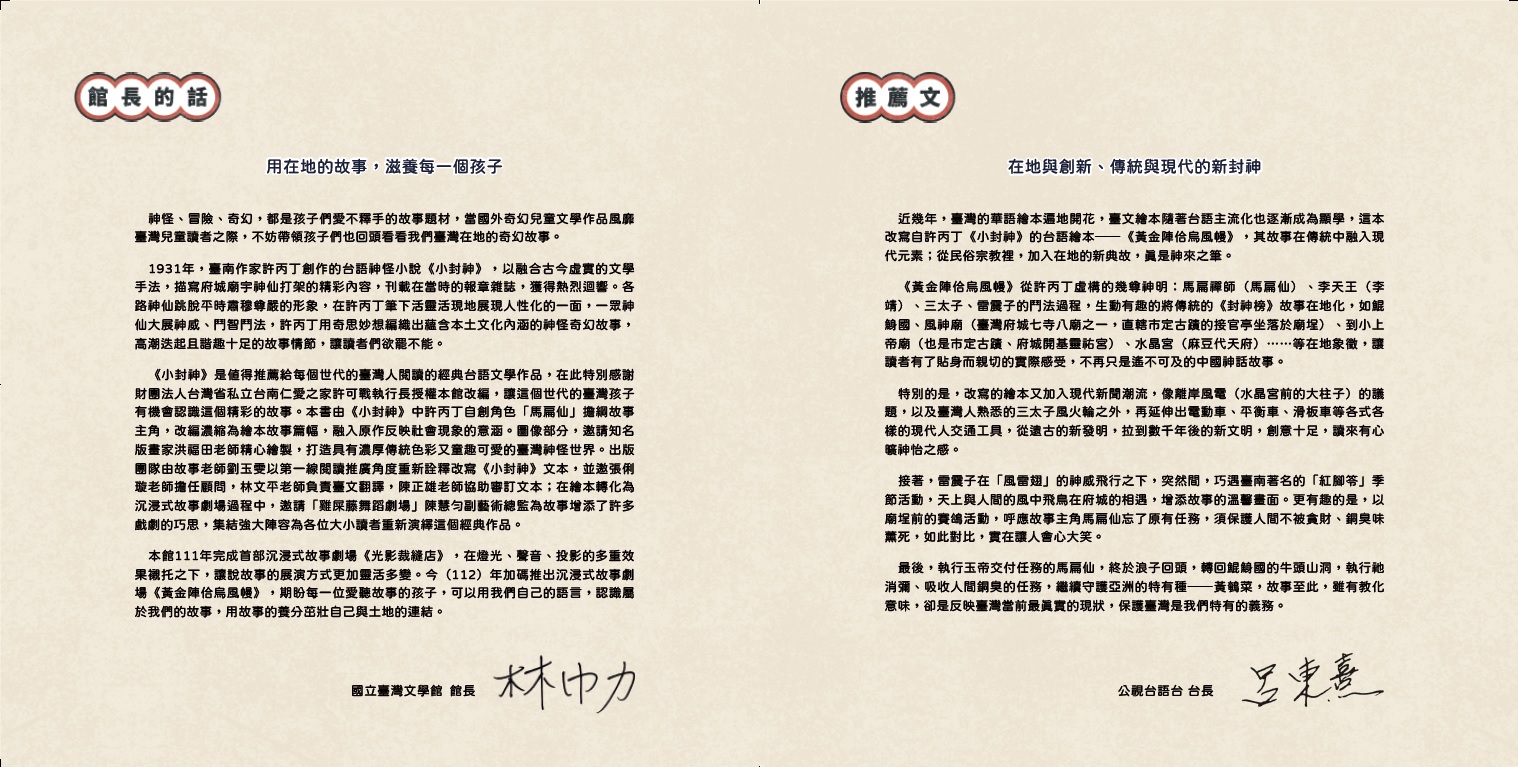 館長的話
用在地的故事，滋養每一個孩子
神怪、冒險、奇幻，都是孩子們愛不釋手的故事題材，當國外奇幻兒童文學作品風靡
臺灣兒童讀者之際，不妨帶領孩子們也回頭看看我們臺灣在地的奇幻故事。
1931年，臺南作家許丙丁創作的台語神怪小說《小封神》，以融合古今虛實的文學
手法，描寫府城廟宇神仙打架的精彩內容，刊載在當時的報章雜誌，獲得熱烈迴響。各
路神仙跳脫平時肅穆尊嚴的形象，在許丙丁筆下活靈活現地展現人性化的一面，一眾神
仙大展神威、鬥智鬥法，許丙丁用奇思妙想編織出蘊含本土文化內涵的神怪奇幻故事，
高潮迭起且諧趣十足的故事情節，讓讀者們欲罷不能。
《小封神》是值得推薦給每個世代的臺灣人閱讀的經典台語文學作品，在此特別感謝
財團法人台灣省私立台南仁愛之家許可戰執行長授權本館改編，讓這個世代的臺灣孩子
有機會認識這個精彩的故事。本書由《小封神》中許丙丁自創角色「馬扁仙」擔綱故事
主角，改編濃縮為繪本故事篇幅，融入原作反映社會現象的意涵。圖像部分，邀請知名
版畫家洪福田老師精心繪製，打造具有濃厚傳統色彩又童趣可愛的臺灣神怪世界。出版
團隊由故事老師劉玉雯以第一線閱讀推廣角度重新詮釋改寫《小封神》文本，並邀張俐
璇老師擔任顧問，林文平老師負責臺文翻譯，陳正雄老師協助審訂文本；在繪本轉化為
沉浸式故事劇場過程中，邀請「雞屎藤舞蹈劇場」陳慧勻副藝術總監為故事增添了許多
戲劇的巧思，集結強大陣容為各位大小讀者重新演繹這個經典作品。
本館111年完成首部沉浸式故事劇場《光影裁縫店》，在燈光、聲音、投影的多重效
果襯托之下，讓說故事的展演方式更加靈活多變。今（112）年加碼推出沉浸式故事劇
場《黃金陣佮烏風幔》，期盼每一位愛聽故事的孩子，可以用我們自己的語言，認識屬
於我們的故事，用故事的養分茁壯自己與土地的連結。
國立臺灣文學館 館長 林巾力
推薦文
在地與創新、傳統與現代的新封神
近幾年，臺灣的華語繪本遍地開花，臺文繪本隨著台語主流化也逐漸成為顯學，這本
改寫自許丙丁《小封神》的台語繪本──《黃金陣佮烏風幔》，其故事在傳統中融入現
代元素；從民俗宗教裡，加入在地的新典故，真是神來之筆。
《黃金陣佮烏風幔》從許丙丁虛構的幾尊神明：馬扁禪師（馬扁仙）、李天王（李
靖）、三太子、雷震子的鬥法過程，生動有趣的將傳統的《封神榜》故事在地化，如鯤
鯓國、風神廟（臺灣府城七寺八廟之一，直轄市定古蹟的接官亭坐落於廟埕）、到小上
帝廟（也是市定古蹟、府城開基靈祐宮）、水晶宮（麻豆代天府）……等在地象徵，讓
讀者有了貼身而親切的實際感受，不再只是遙不可及的中國神話故事。
特別的是，改寫的繪本又加入現代新聞潮流，像離岸風電（水晶宮前的大柱子）的議
題，以及臺灣人熟悉的三太子風火輪之外，再延伸出電動車、平衡車、滑板車等各式各
樣的現代人交通工具，從遠古的新發明，拉到數千年後的新文明，創意十足，讀來有心
曠神怡之感。
接著，雷震子在「風雷翅」的神威飛行之下，突然間，巧遇臺南著名的「紅腳笭」季
節活動，天上與人間的風中飛鳥在府城的相遇，增添故事的溫馨畫面。更有趣的是，以
廟埕前的賽鴿活動，呼應故事主角馬扁仙忘了原有任務，須保護人間不被貪財、銅臭味
薰死，如此對比，實在讓人會心大笑。
最後，執行玉帝交付任務的馬扁仙，終於浪子回頭，轉回鯤鯓國的牛頭山洞，執行祂
消彌、吸收人間銅臭的任務，繼續守護亞洲的特有種──黃鵪菜，故事至此，雖有教化
意味，卻是反映臺灣當前最真實的現狀，保護臺灣是我們特有的義務。
公視台語台 台長 呂東熹